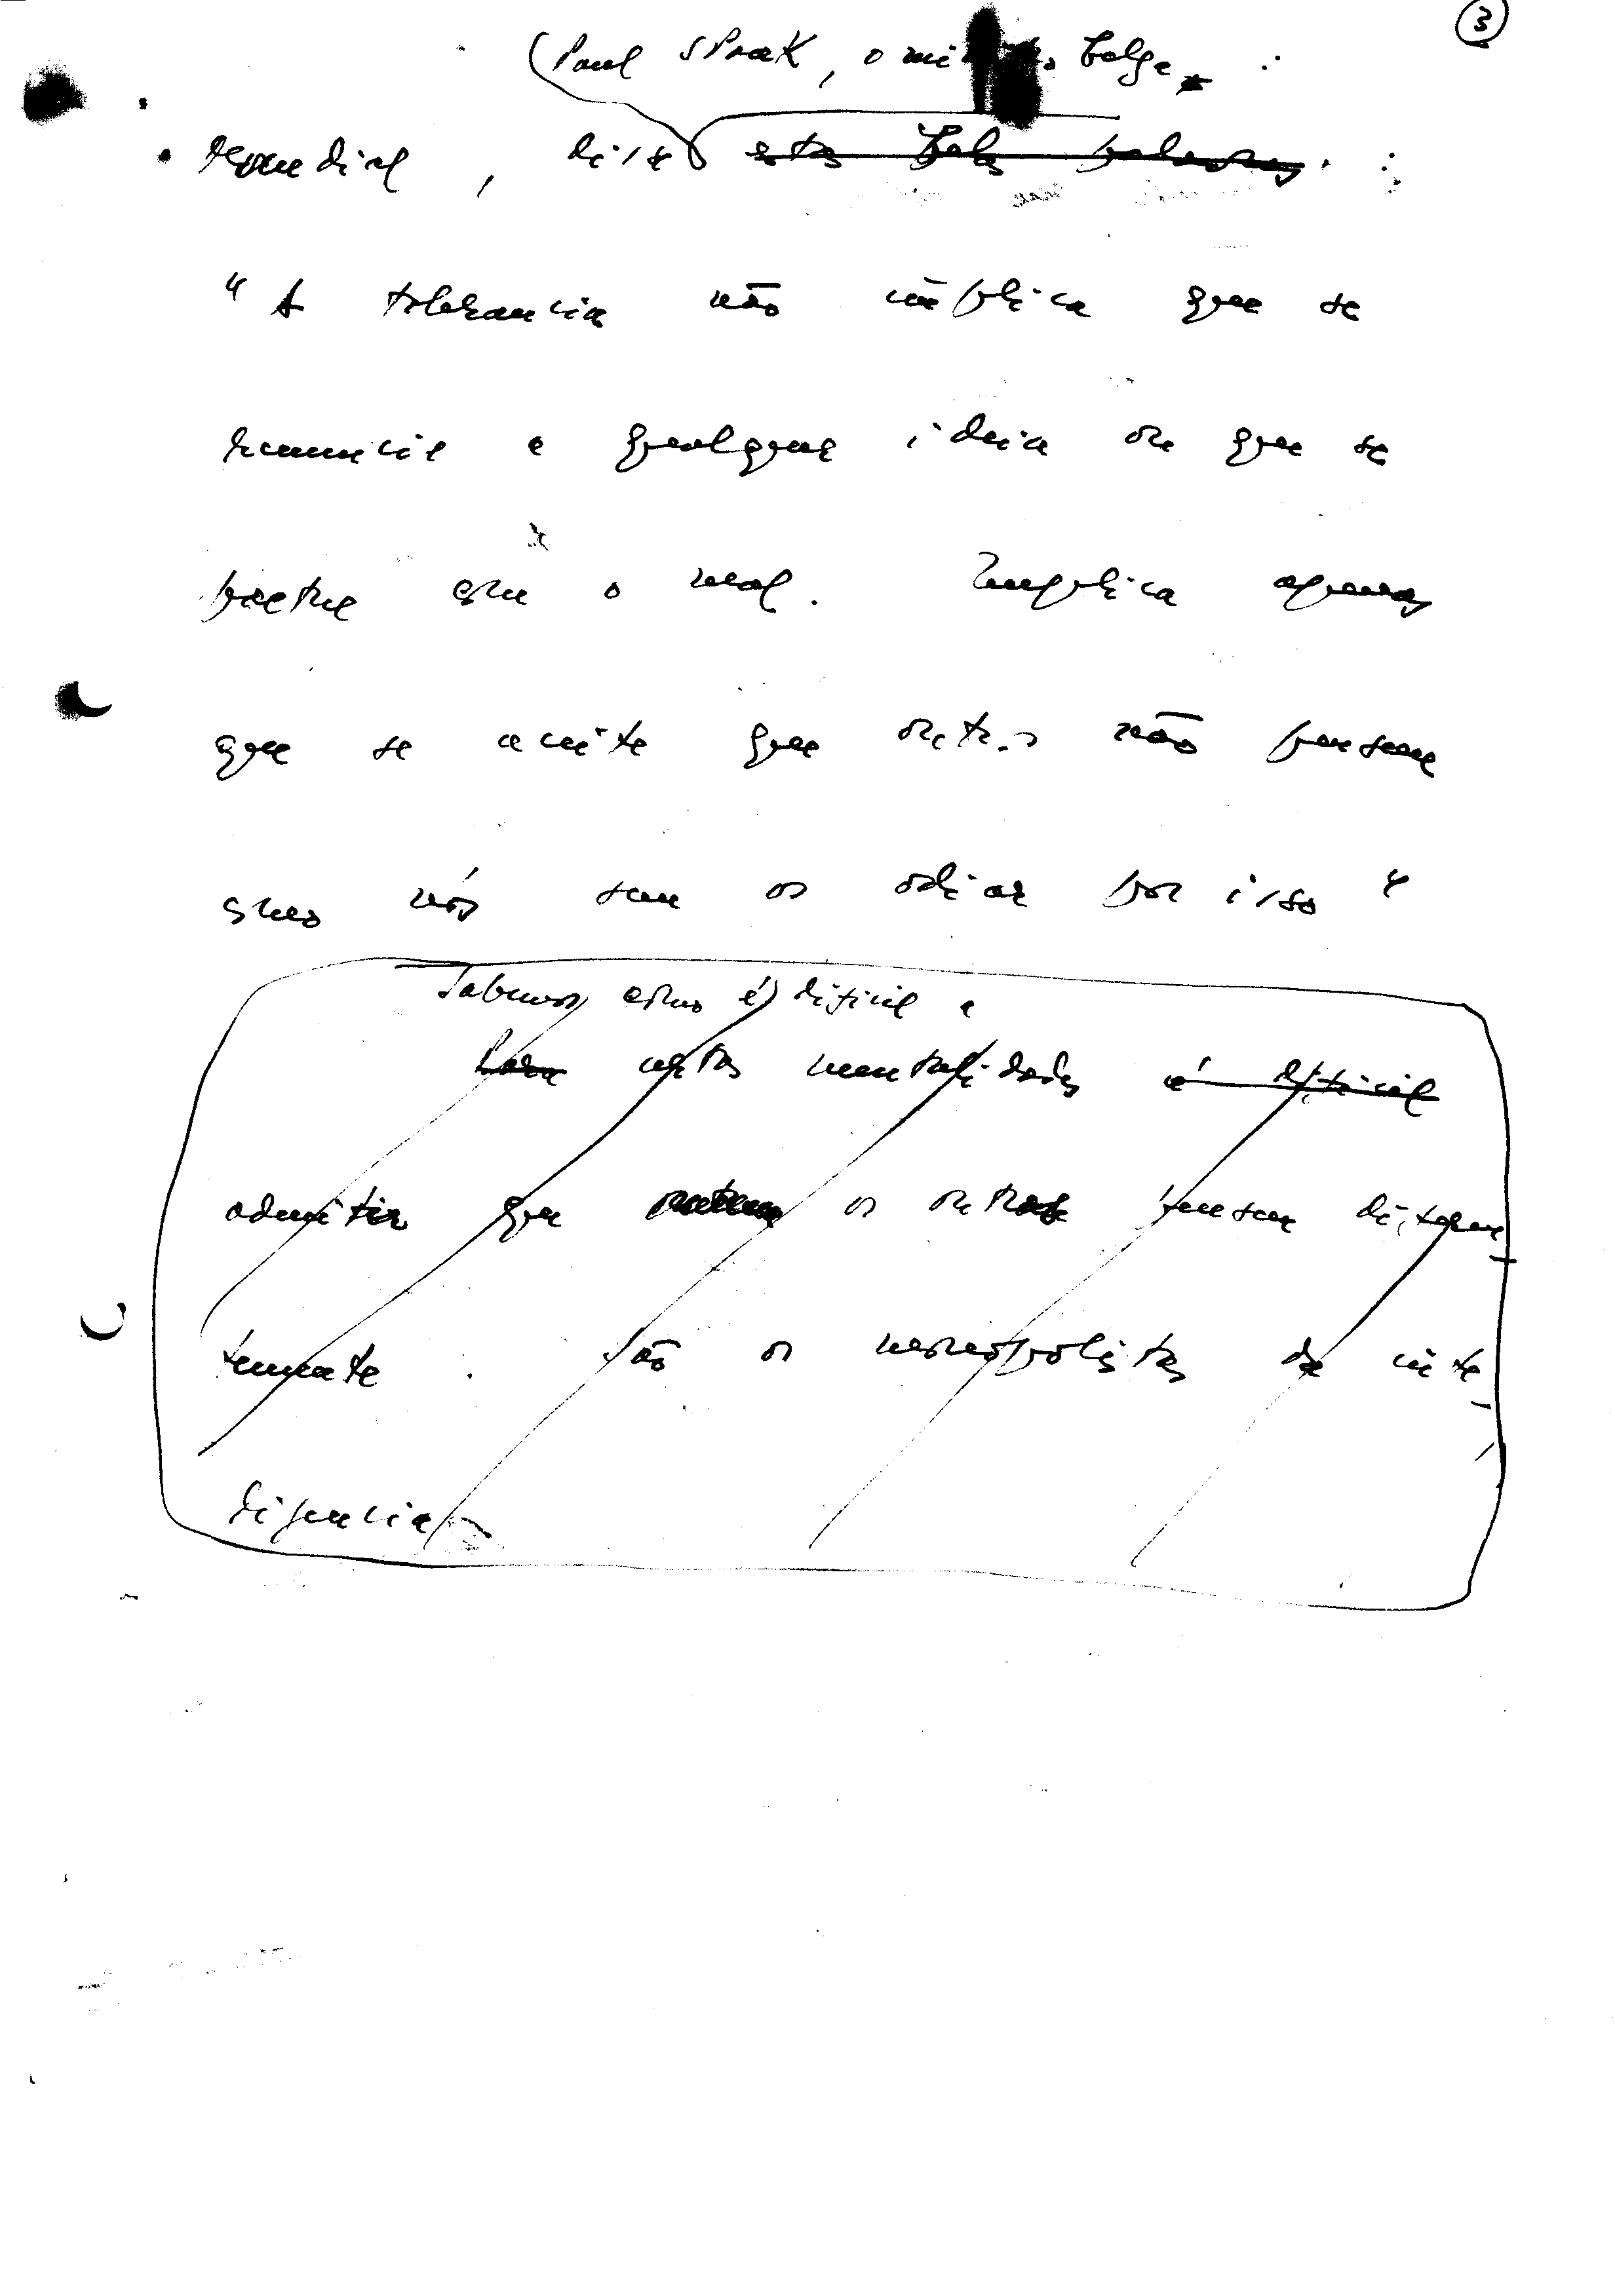 3
(Paul Spaak, o ministro belga
mundial, disse estas belas palavras:
"A tolerancia não implica que se
renuncie a qualquer ideia ou que se
pactue com o mal. Implica apenas
que se aceite que outros não pensem
como nós sem os odiar por isso"
Sabemos como é dificil a
Para certas mentalidades é dificil
admitir que os outros pensem diferen
temente. São os monopolistas da inte
ligencia